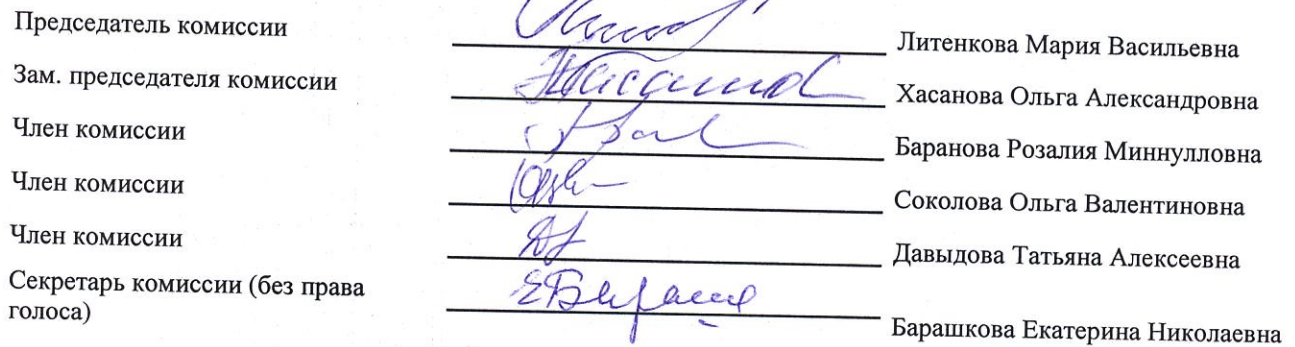 Председатель комиссии Литенкова Мария Васильевна
Зам. председателя комиссии Хасанова Ольга Александровна
Член комиссии Баранова Розалия Миннулловна
Член комиссии Соколова Ольга Валентиновна
Член комиссии Давыдова Татьяна Алексеевна
Секретарь комиссии (без права
голоса) Барашкова Екатерина Николаевна